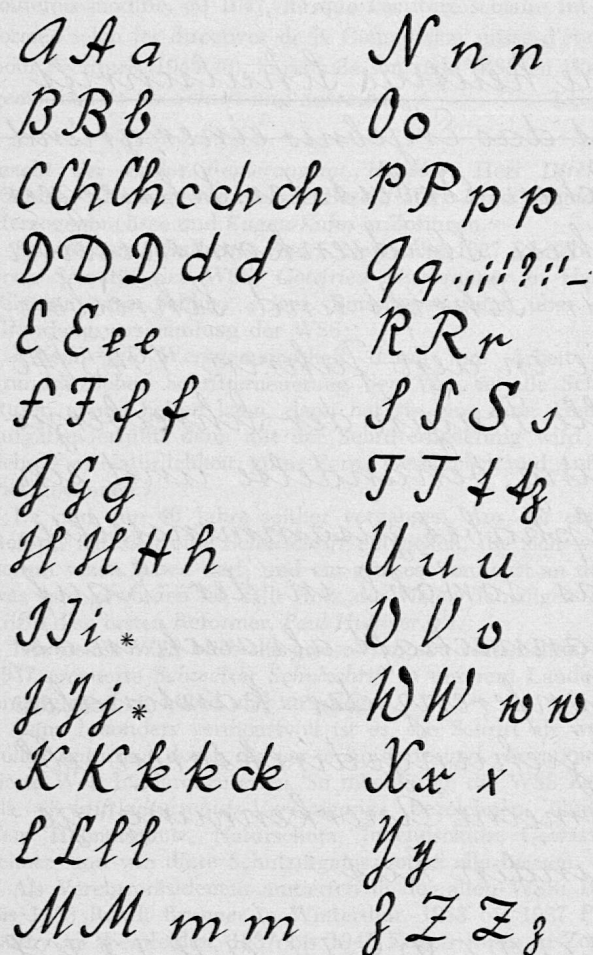 A A a
B B b
C Ch Ch c ch ch
D D D d d
E E e e
F F f f
G G g
H H H h
I I i *
J J j *
K K k k ck
L L l l
M M m m
N n n
O o
P P p p
Q q . , , ; ! ? ! ! –
R R r
S S S s
T T t tz
U u u
V V v
W W w w
X x x
Y y
Z Z Z z